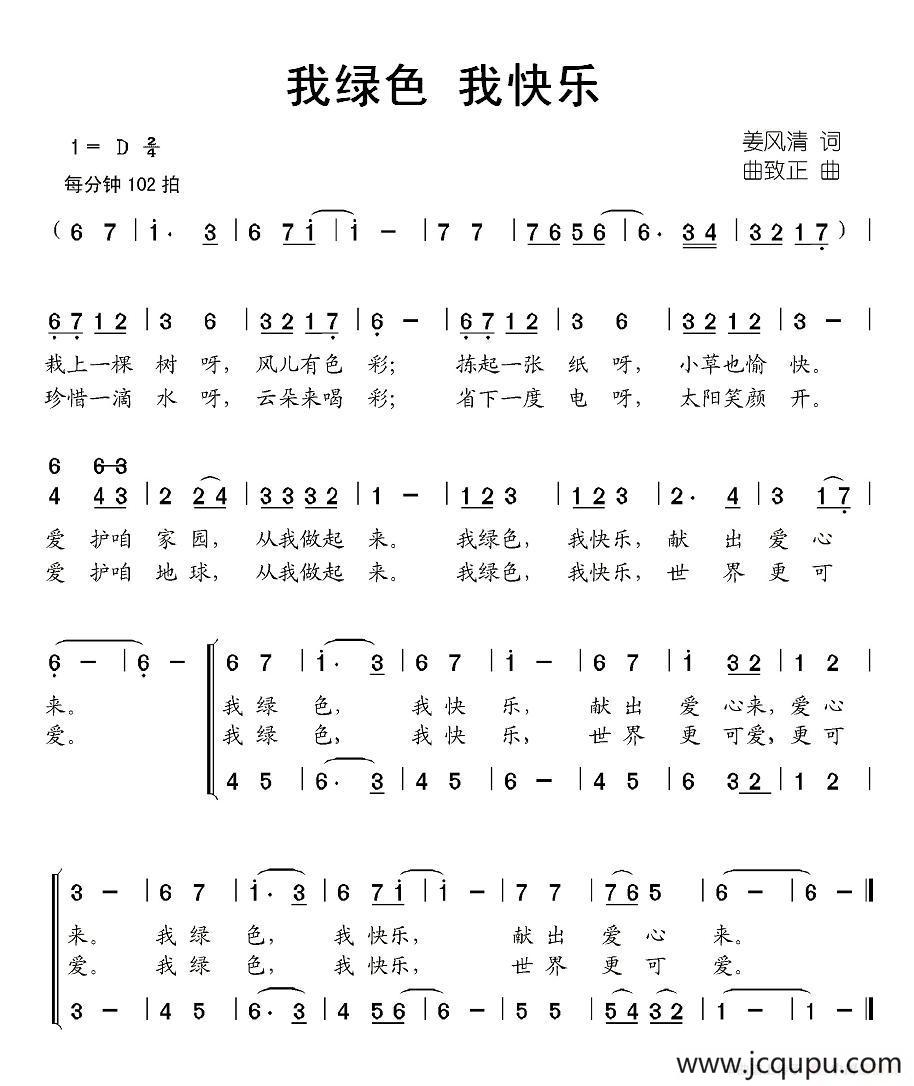 我绿色 我快乐
1= D 2/4
姜风清 词
每分钟 102 拍
曲致正 曲
( 6 7 | i· 3 | 6 7 i | i – | 7 7 | 7 6 5 6 | 6· 3 4 | 3 2 1 7 ) |
6 7 1 2 | 3 6 | 3 2 1 7 | 6 – | 6 7 1 2 | 3 6 | 3 2 1 2 | 3 – |
栽上一棵 树 呀, 风儿有色 彩; 拣起一张 纸 呀, 小草也愉 快。
珍惜一滴 水 呀, 云朵来喝 彩; 省下一度 电 呀, 太阳笑颜 开。
6 6 3
4 4 3 | 2 2 4 | 3 3 3 2 | 1 – | 1 2 3 | 1 2 3 | 2· 4 | 3 1 7 |
爱 护咱 家 园, 从我做起 来。 我绿色, 我快乐, 献 出 爱 心
爱 护咱 地 球, 从我做起 来。 我绿色, 我快乐, 世 界 更 可
6 – | 6 – | 6 7 | i· 3 | 6 7 | i – | 6 7 | i 3 2 | 1 2 |
来。 我 绿 色, 我 快 乐, 献 出 爱 心来, 爱 心
爱。 我 绿 色, 我 快 乐, 世 界 更 可爱, 更 可
4 5 | 6· 3 | 4 5 | 6 – | 4 5 | 6 3 2 | 1 2 |
3 – | 6 7 | i· 3 | 6 7 i | i – | 7 7 | 7 6 5 | 6 – | 6 – ‖
来。 我 绿 色, 我 快乐, 献 出 爱 心 来。
爱。 我 绿 色, 我 快乐, 世 界 更 可 爱。
3 – | 4 5 | 6· 3 | 4 5 6 | 6 – | 5 5 | 5 4 3 2 | 1 – | 1 – ‖
www.jcqupu.com